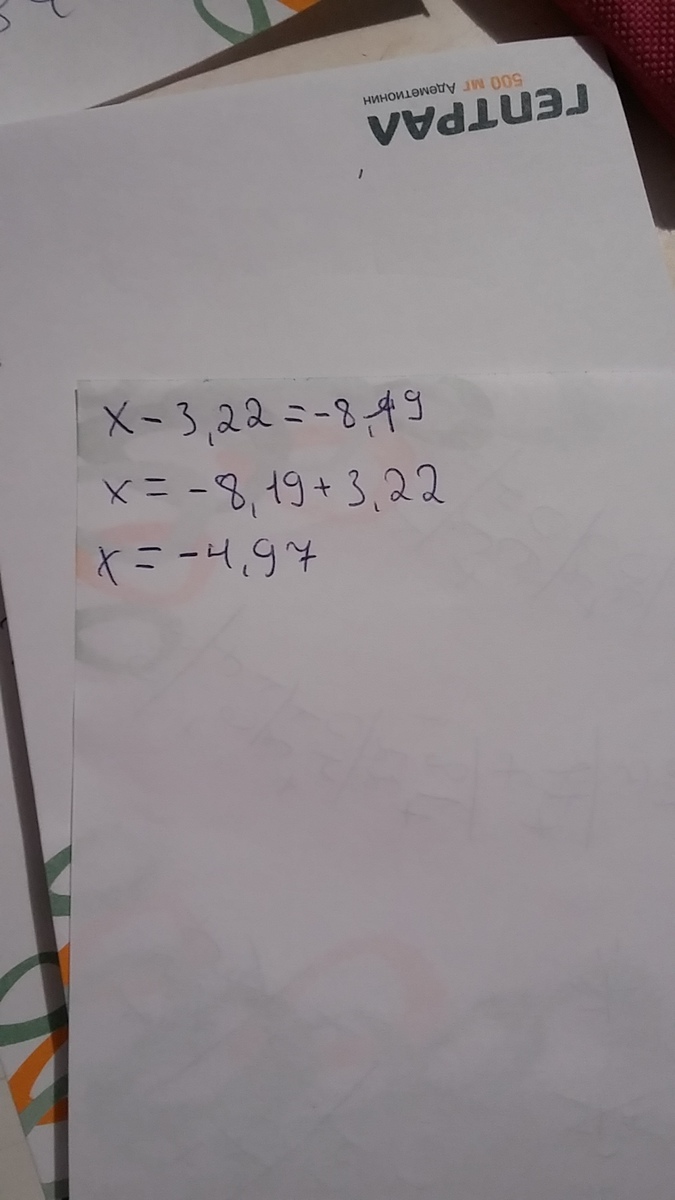 ГЕПТРАЛ
500 мг Адеметионин
x - 3,22 = -8,19
x = -8,19 + 3,22
x = -4,97